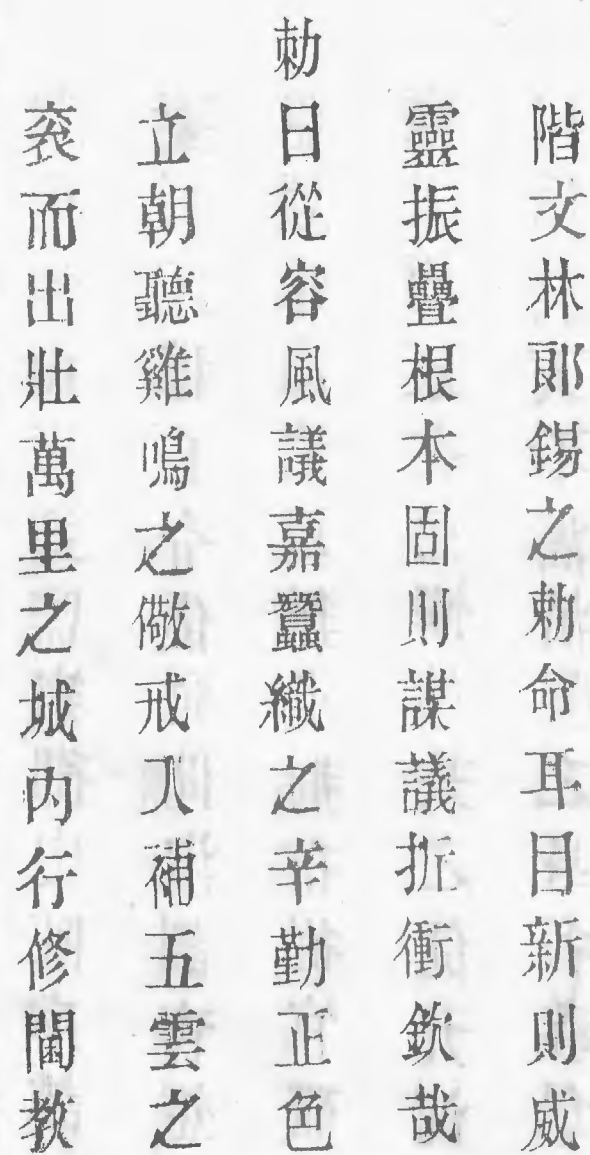 階文林郎錫之勅命耳目新則威
靈振疊根本固則謀議折衝欽哉
勅曰從容風議嘉蠶織之辛勤正色
立朝聽雞鳴之儆戒入補五雲之
衮而出壯萬里之城内行修閫教